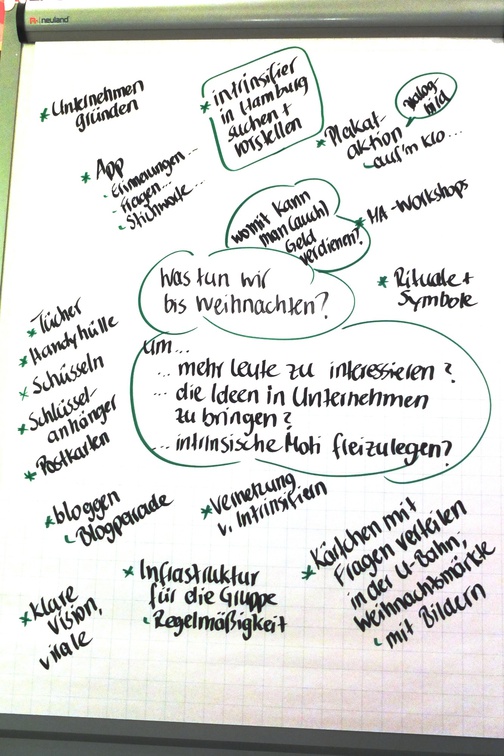 neuland
* Unternehmen
gründen
* intrinsifier
in Hamburg
suchen +
vorstellen
* Plakat-
aktion
auf'm Klo...
Dialog-
bild
* App
- Erinnerungen...
- Fragen...
- Stichworte...
womit kann
man (auch)
Geld
verdienen?
* MA-Workshops
Was tun wir
bis Weihnachten?
* Rituale +
Symbole
um...
... mehr Leute zu interessieren?
... die Ideen in Unternehmen
zu bringen?
... intrinsische Moti freizulegen?
* Tücher
* Handyhülle
* Schüsseln
* Schlüssel-
anhänger
* Postkarten
* bloggen
Blogparade
* Vernetzung
v. Intrinsifiern
* Kärtchen mit
Fragen verteilen
in der U-Bahn,
Weihnachtsmärkte
mit Bildern
* Infrastruktur
für die Gruppe
- Regelmäßigkeit
* klare
Vision,
vitale